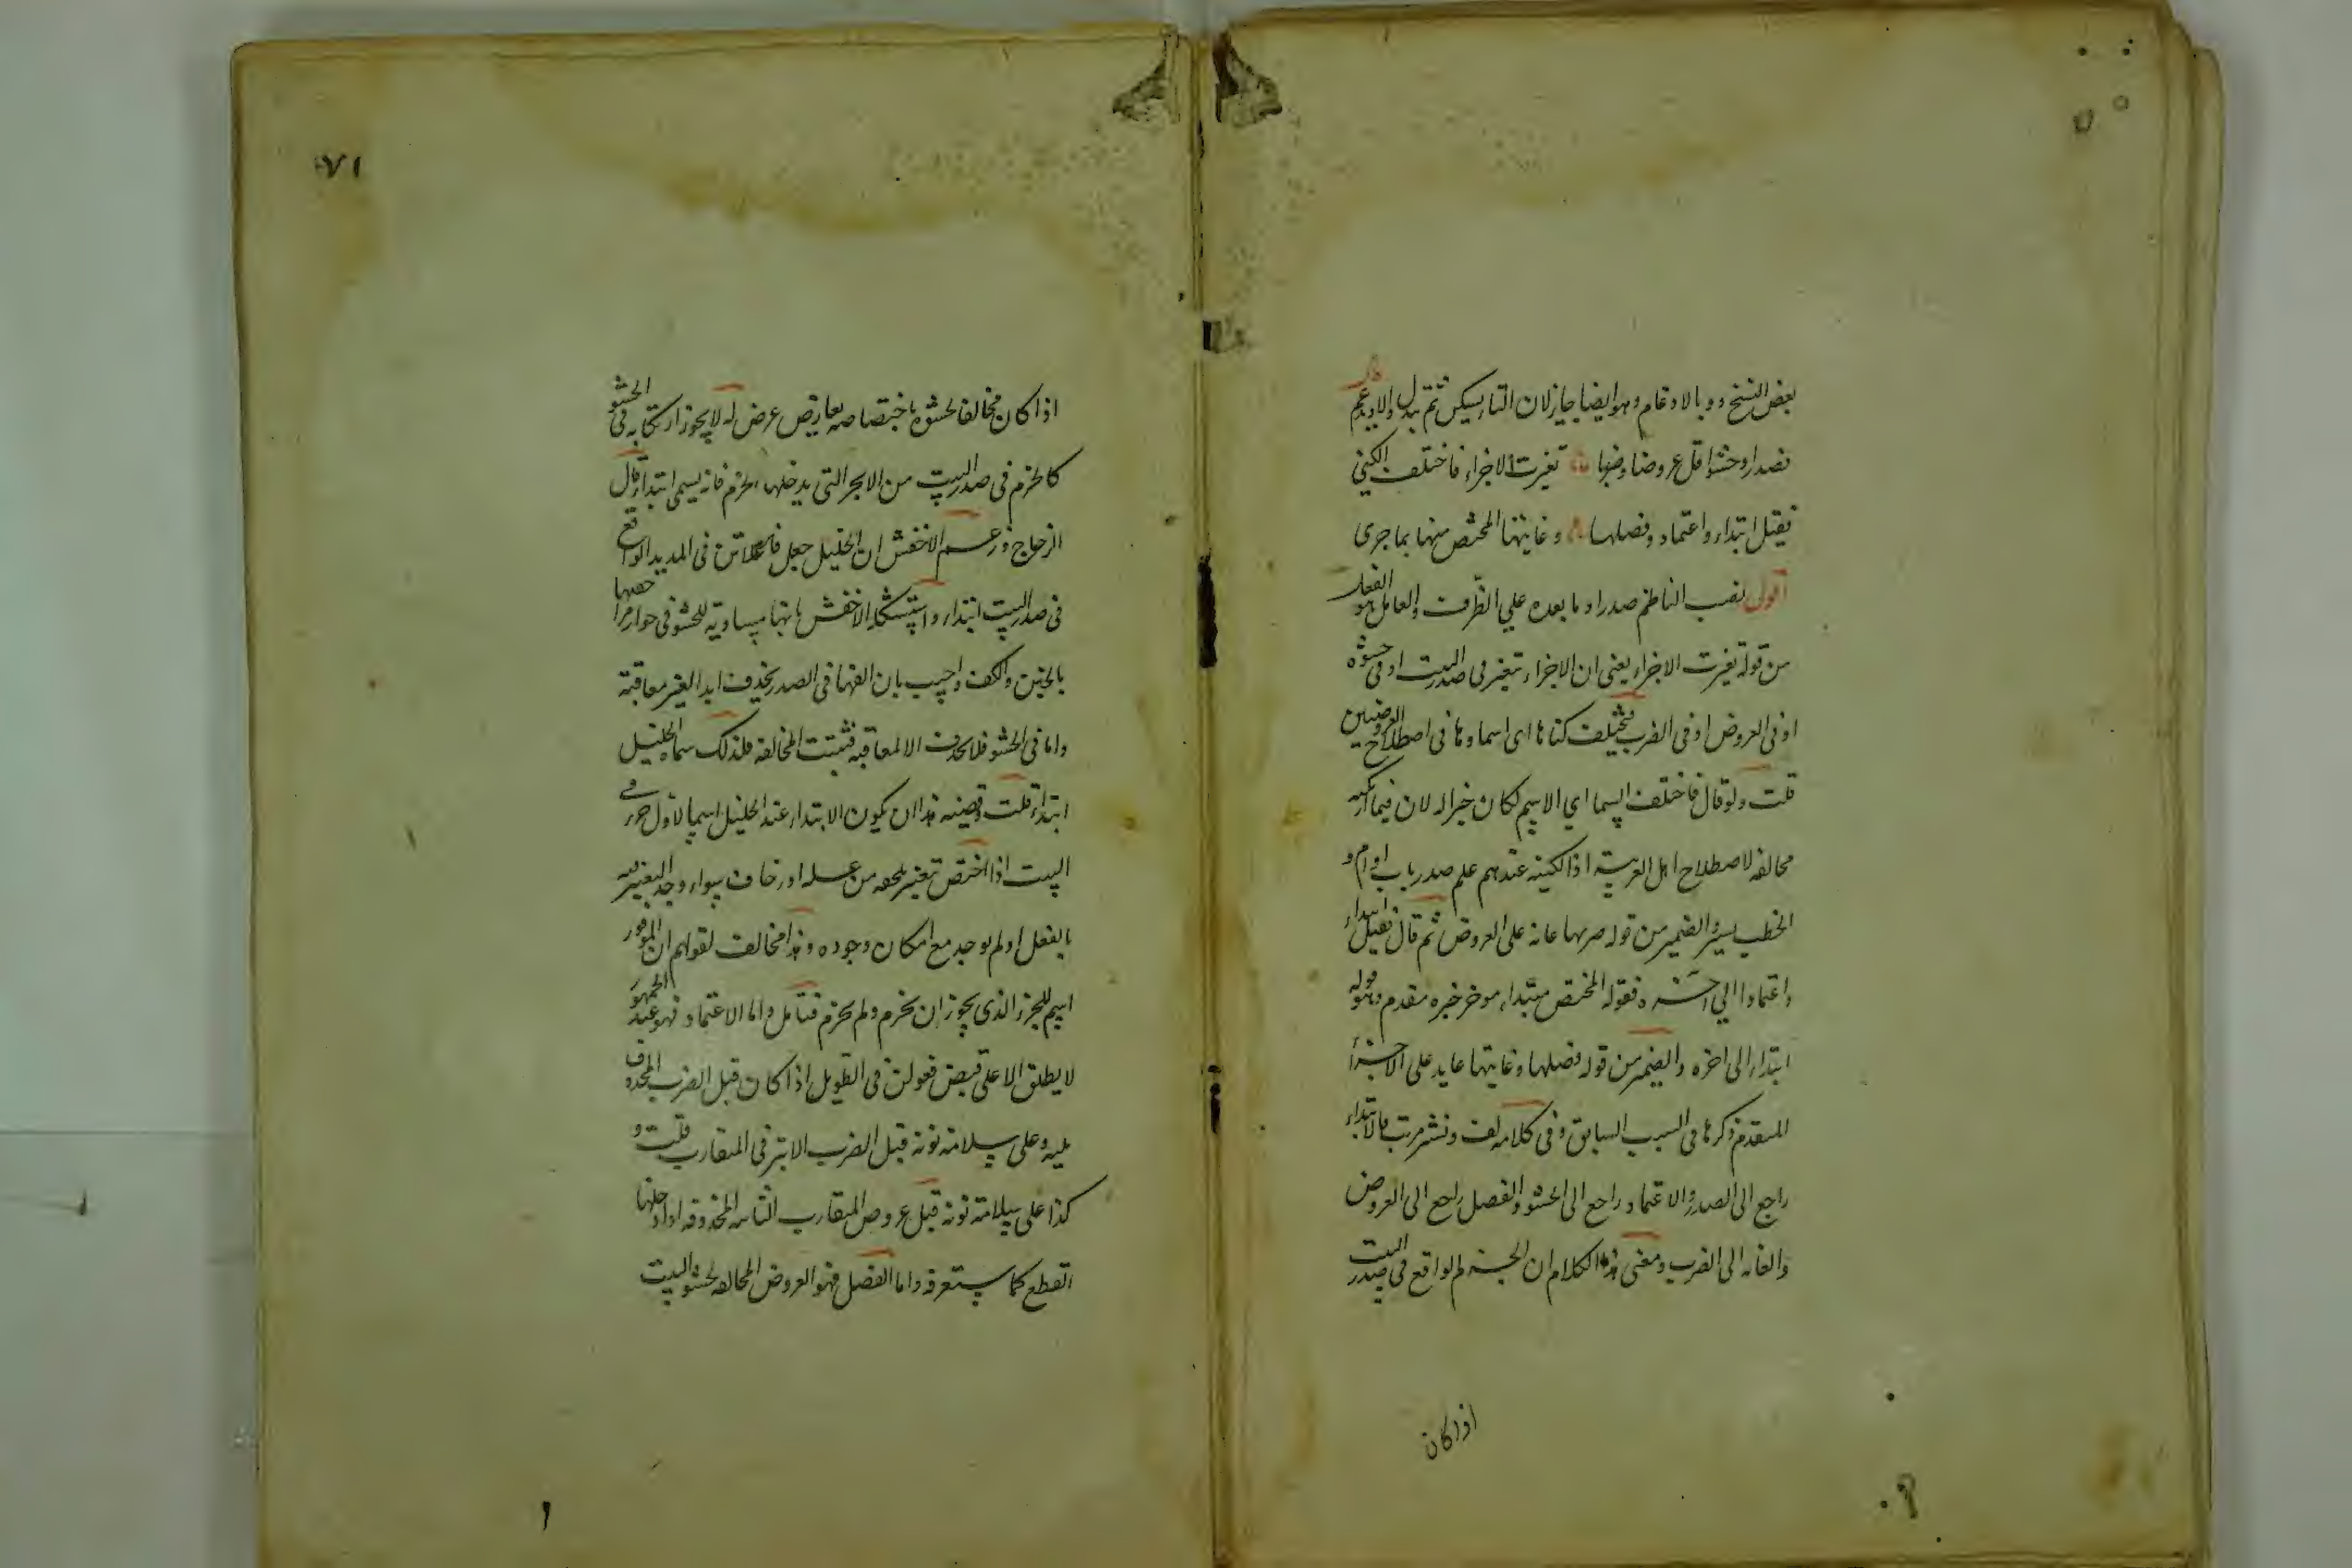 بعض النسخ ودو بالادغام وهو ايضا جايز لان التا يسكن ثم تبدل دالا ويدغم
فصدرا وحشوا قل عروضا وضربها تغيرت الاجزاء فاختلف الكنى
فقيل ابتداء واعتماد وفصلها وغايتها المختص منها بما جرى
اقول نصب الناظم صدرا وما بعده علي الظرف والعامل هو الفعل
من قوله تغيرت الاجزاء يعنى ان الاجزاء تتغير فى صدر البيت او فى حشوه
او فى العروض او فى الضرب فيختلف كناها اى اسماوها فى اصطلاح العروضيين
قلت ولو قال فاختلف السما اي الاسم لكان خيرا له لان فيما ارتكبه
مخالفه لاصطلاح اهل العربية اذ الكنية عندهم علم صدر باب او ام و
الخطب يسير والضمير من قوله ضربها عايد على العروض ثم قال فقيل ابتداء
واعتمادا الي اخره فقوله المختص مبتداء موخر خبره مقدم وهو قوله
ابتداء الى اخره والضمير من قوله وفصلها وغايتها عايد على الاجزا
المتقدم ذكرها فى البيت السابق وفى كلامه لف ونشر مرتب فالابتداء
راجع الى الصدر والاعتماد راجع الى الحشو والفصل راجع الى العروض
والغايه الى الضرب ومعنى هذا الكلام ان الجزء الواقع فى صدر البيت
اذا كان
٧١
اذا كان مخالفا لحشوه باختصاصه بعارض عرض له لا يجوز ارتكابه فى الحشو
كالخرم فى صدر البيت من الابحر التى يدخلها الخرم فانه يسمى ابتداء قال
الزجاج وزعم الاخفش ان الخليل جعل فاعلاتن فى المديد الواقع
فى صدر البيت ابتداء واستشكله الاخفش بانها مساوية للحشو فى جواز مزاحفها
بالخبن والكف واجيب بان الفها فى الصدر يحذف ابدا لغير معاقبة
واما فى الحشو فلا يحذف الا لمعاقبة فثبتت المخالفه فلذلك سماه الخليل
ابتداء قلت وقضيته هذا ان يكون الابتداء عند الخليل اسما لاول جزء فى
البيت اذا اختص بتغيير يلحقه من علله او زحاف سواء وجد التغيير فيه
بالفعل او لم يوجد مع امكان وجوده وهذا مخالف لقولهم ان الموفور
اسم للجزء الذى يجوز ان يخرم ولم يخرم فتامل واما الاعتماد فهو عند الجمهور
لا يطلق الا على قبض فعولن فى الطويل اذا كان قبل الضرب المحذوف
عليه وعلى سلامة نونه قبل الضرب الابتر فى المتقارب قلت و
كذا على سلامة نونه قبل عروض المتقارب الثانيه المحذوفه اذا دخلها
القطع كما ستعرفه واما الفصل فهو العروض المخالفه لحشو البيت